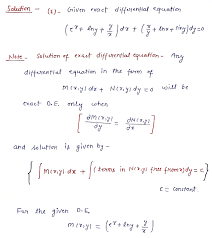 Solution - (1) - Given exact differential equation
(eˣ + lny + y/x) dx + (x/y + lnx + siny) dy = 0
Note - Solution of exact differential equation - Any
differential equation in the form of
M(x,y) dx + N(x,y) dy = 0 will be
exact D.E. only when
[∂M(x,y)/∂y = ∂N(x,y)/∂x]
and solution is given by -
{∫M(x,y) dx + ∫(terms in N(x,y) free from x) dy = c}
C = Constant.
For the given D.E.
M(x,y) = (eˣ + lny + y/x)